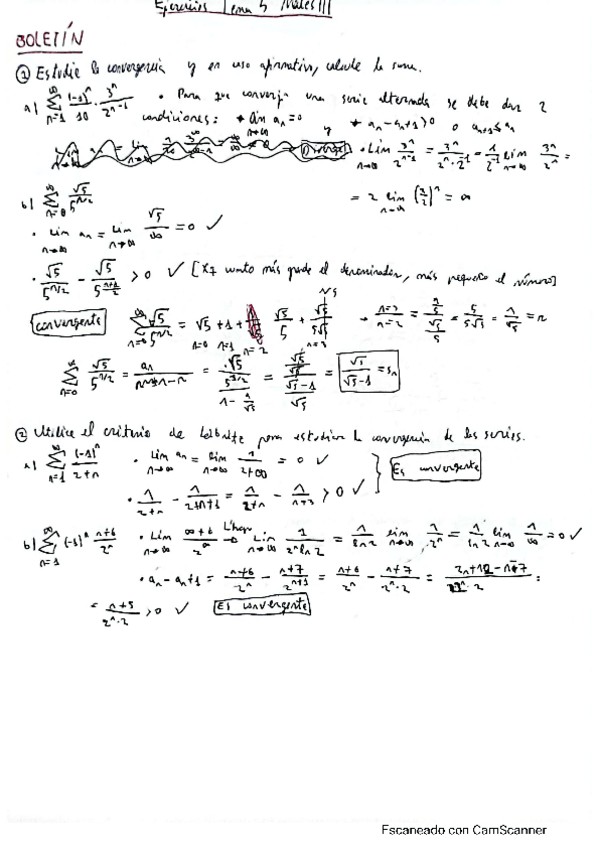 Ejercicios Tema 5 Mates III
BOLETÍN
① Estudie la convergencia y en caso afirmativo, calcule la suma.
a) ∞Σn=1 (-1)^n/10 · 3^n/2^(n-1) • Para que converja una serie alternada se debe dar 2
condiciones: * lim n→∞ an = 0 y * an - an+1 > 0 o an+1 ≤ an
• lim n→∞ 3^n/2^(n-1) = 3^n/(2^n · 2^-1) = 1/2^-1 lim n→∞ 3^n/2^n =
= 2 lim n→∞ (3/2)^n = ∞
b) ∞Σn=0 √5/5^(n/2)
• lim n→∞ an = lim n→∞ √5/∞ = 0 ✓
• √5/5^(n/2) - √5/5^((n+1)/2) > 0 ✓ [ cuanto más grande el denominador, más pequeño el número]
convergente ∞Σn=0 √5/5^(n/2) = √5 + 1 + √5/5 + √5/5√5 → n=3/n=2 = = 5/5√5 = 1/√5 = r
∞Σn=0 √5/5^(n/2) = = √5/(√5-1) = Sn
② Utilice el criterio de Leibnitz para estudiar la convergencia de las series.
a) ∞Σn=1 (-1)^n/2+n • lim n→∞ an = lim n→∞ 1/2+∞ = 0 ✓
Es convergente
• 1/2+n - 1/2+n+1 = 1/2+n - 1/n+3 > 0 ✓
b) ∞Σn=1 (-1)^n n+6/2^n • lim n→∞ ∞+6/2^∞ L'Hop → lim n→∞ 1/2^n ln 2 = 1/ln 2 lim n→∞ 1/2^n = 1/ln 2 lim n→∞ 1/∞ = 0 ✓
• an - an+1 = n+6/2^n - n+7/2^(n+1) = n+6/2^n - n+7/2^n·2 = 2n+12-n-7/2^n·2 =
= n+5/2^n·2 > 0 ✓ Es convergente
Escaneado con CamScanner